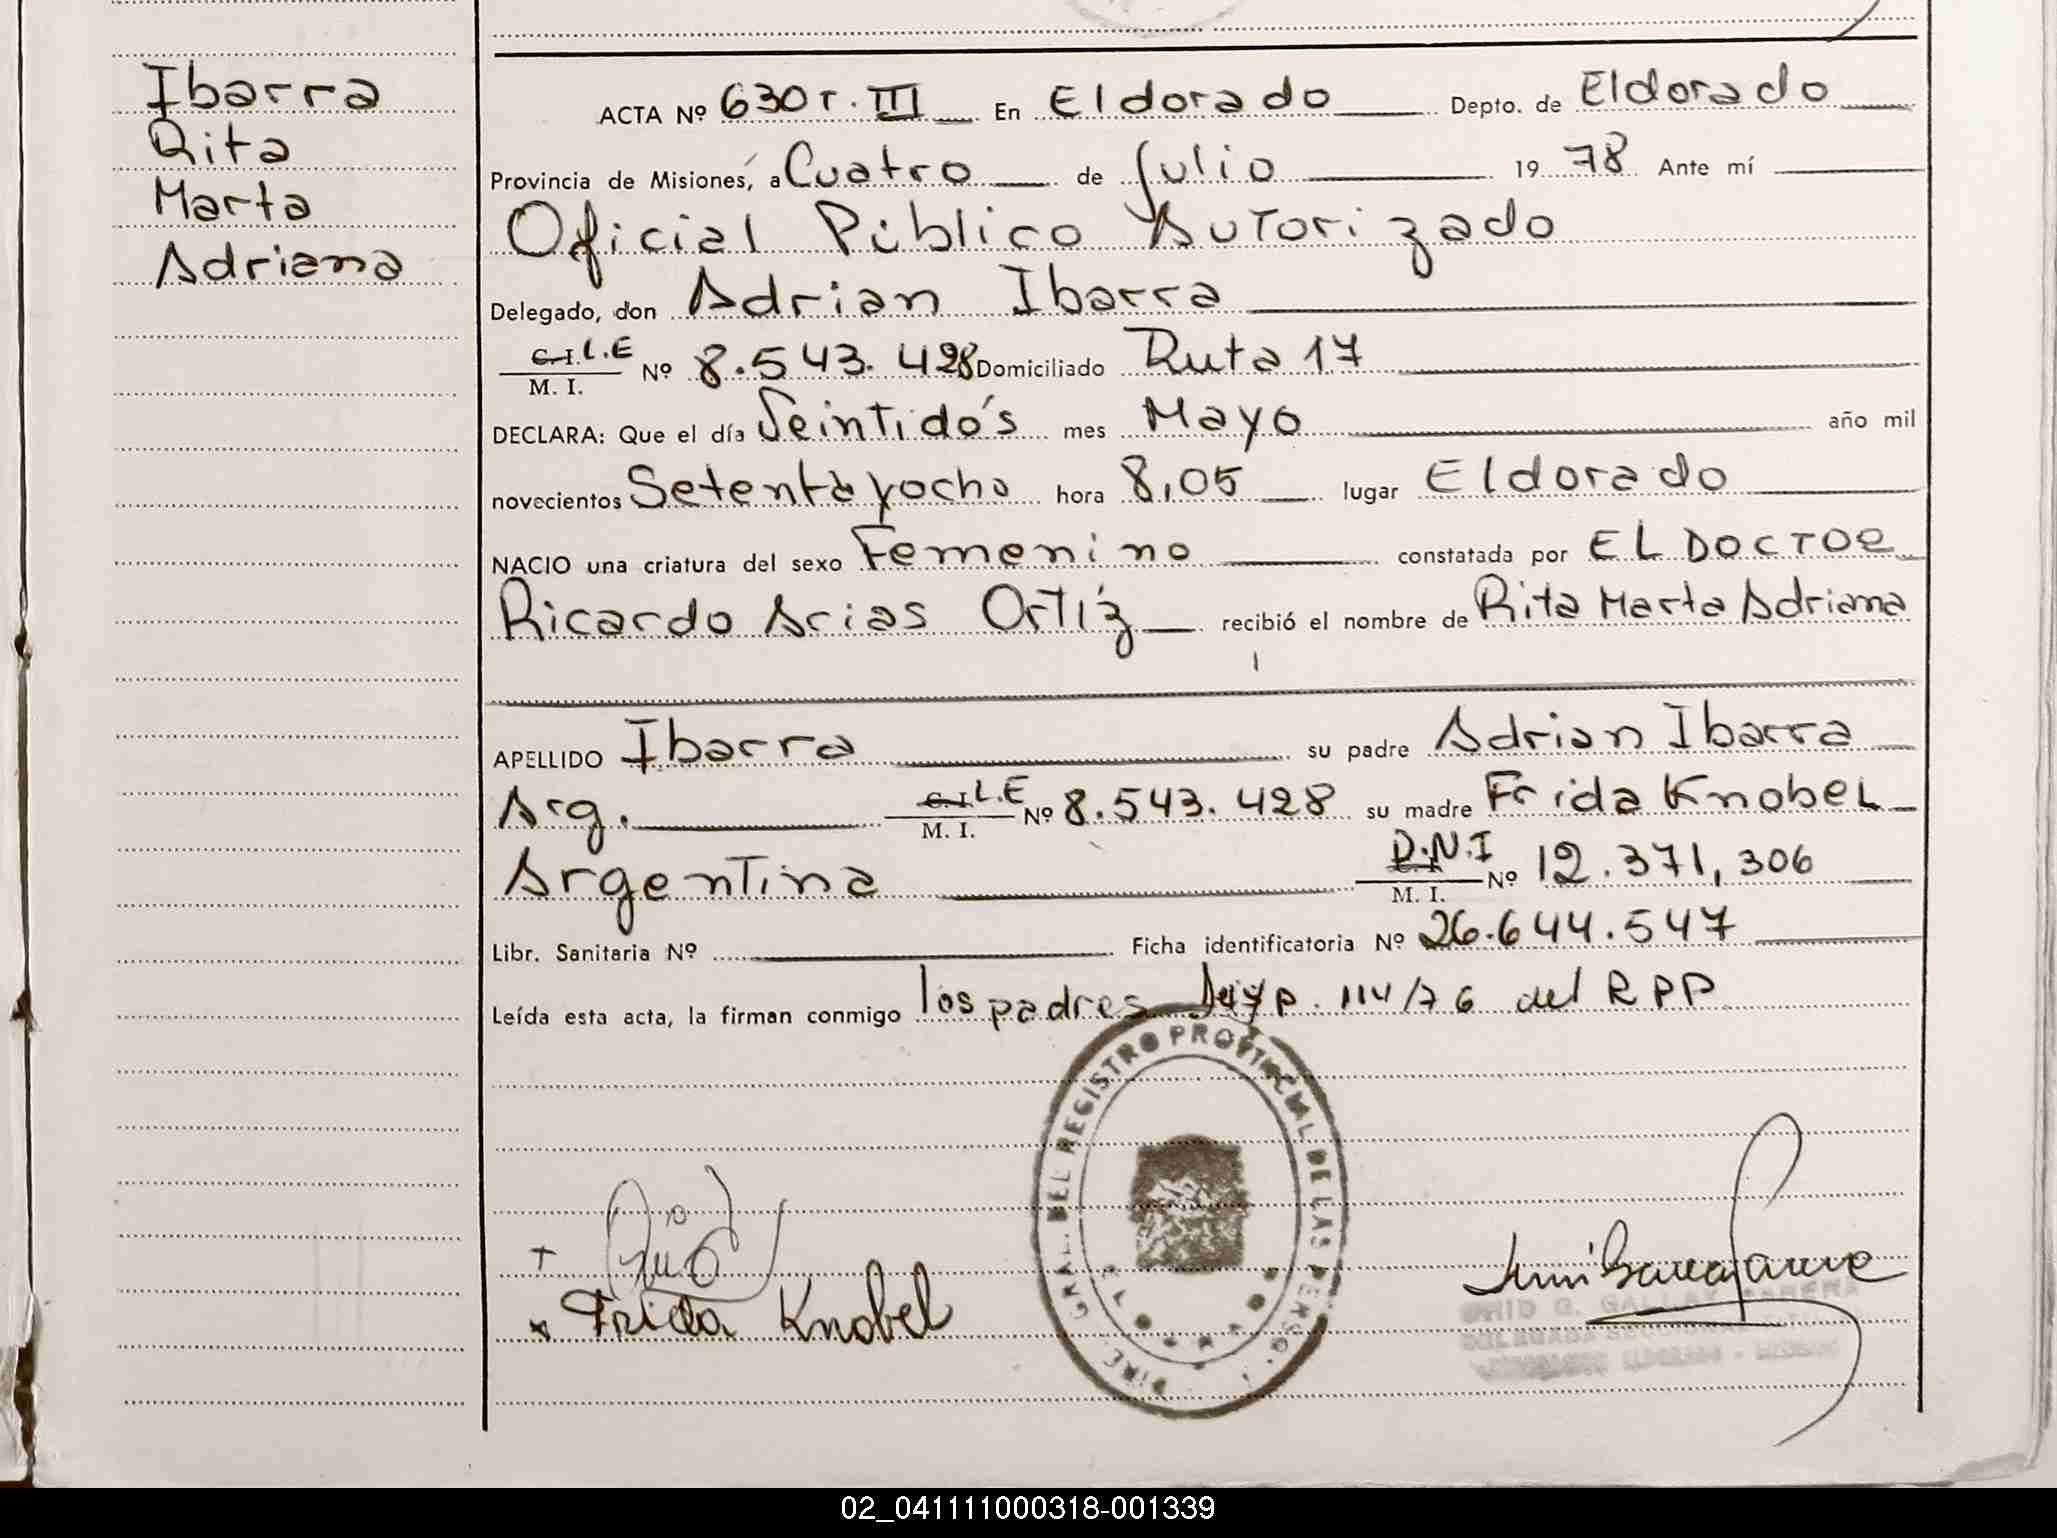 Ibarra
Rita
Marta
Adriana
ACTA Nº 630 T. III En Eldorado Depto. de Eldorado
Provincia de Misiones, a Cuatro de Julio 19 78 Ante mí
Oficial Público Autorizado
Delegado, don Adrian Ibarra
C.I. L.E M. I. Nº 8.543.428 Domiciliado Ruta 17
DECLARA: Que el día Veintidós mes Mayo año mil
novecientos Setenta y ocho hora 8,05 lugar Eldorado
NACIO una criatura del sexo Femenino constatada por EL DOCTOR
Ricardo Arias Ortíz recibió el nombre de Rita Marta Adriana
APELLIDO Ibarra su padre Adrian Ibarra
Arg. C.I. L.E M. I. Nº 8.543.428 su madre Frida Knobel
Argentina D.N.I M. I. Nº 12.371,306
Libr. Sanitaria Nº Ficha identificatoria Nº 26.644.547
Leída esta acta, la firman conmigo los padres 114/76 del RPP
DIRE. GRAL. DEL REGISTRO PROVINCIAL DE LAS PERSO.
Frida Knobel
02_041111000318-001339